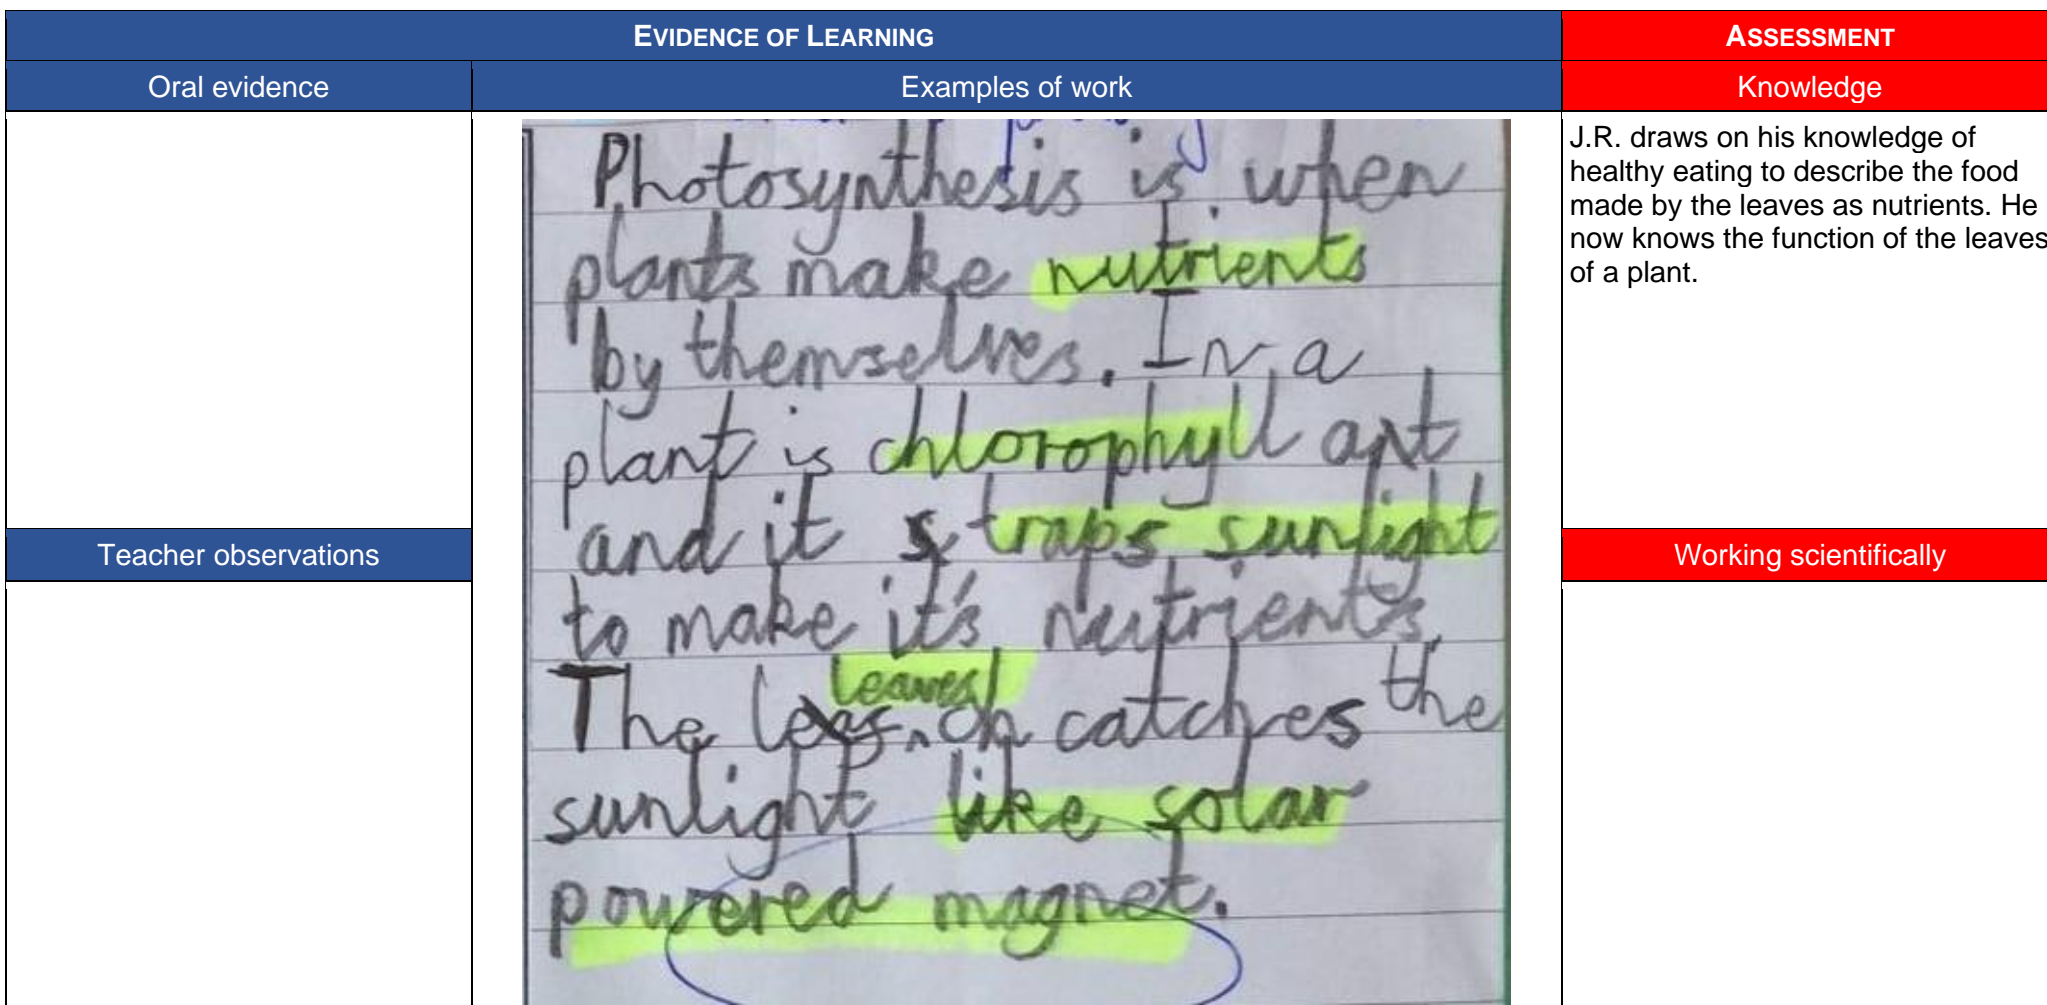 EVIDENCE OF LEARNING
ASSESSMENT
Oral evidence
Examples of work
Knowledge
Photosynthesis is when
plants make nutrients
by themselves. In a
plant is chlorophyll
and it traps sunlight
to make it's nutrients.
The leaves catches the
sunlight like solar
powered magnet.
J.R. draws on his knowledge of
healthy eating to describe the food
made by the leaves as nutrients. He
now knows the function of the leaves
of a plant.
Teacher observations
Working scientifically